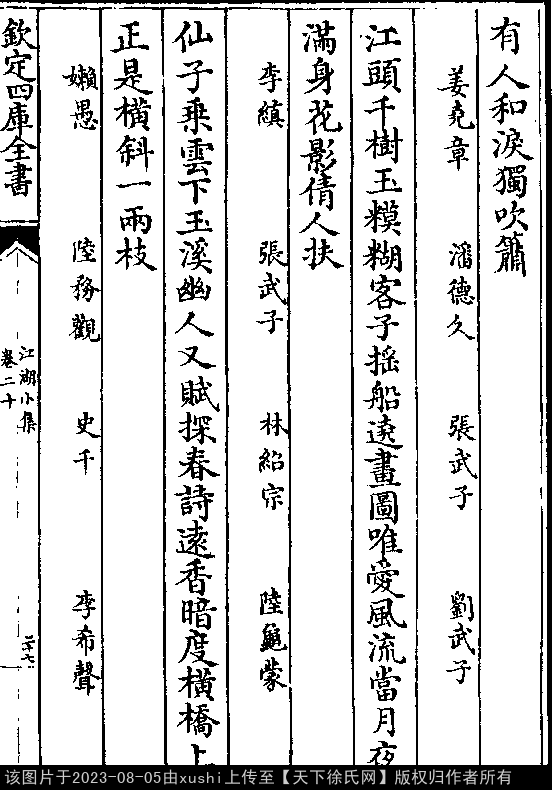 有人和淚獨吹簫
姜堯章 潘德久 張武子 劉武子
江頭千樹玉糢糊客子揺船遶畫圖唯愛風流當月夜
滿身花影倩人扶
李縝 張武子 林紹宗 陸龜蒙
仙子乗雲下玉溪幽人又賦探春詩逺香暗度橫橋上
正是橫斜一兩枝
嬾愚 陸務觀 史千 李希聲
欽定四庫全書
江湖小集
卷二十
二十七
该图片于2023-08-05由xushi上传至【天下徐氏网】版权归作者所有